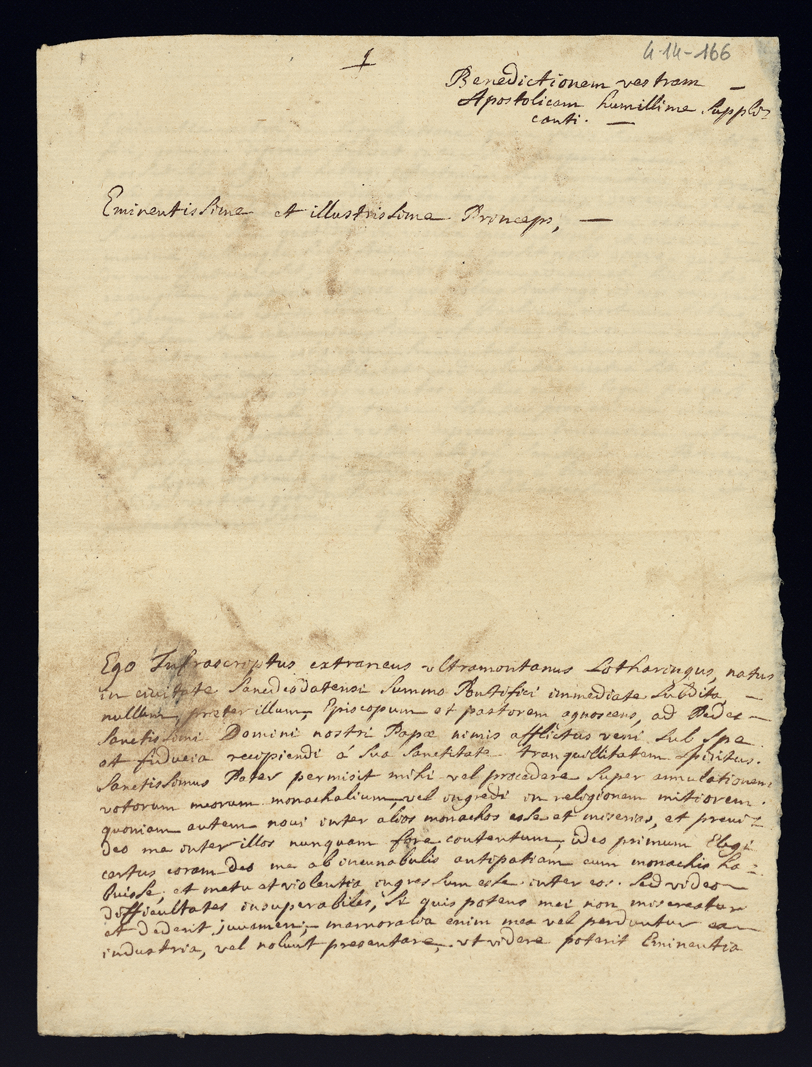 4-14-166
Benedictionem vestram —
Apostolicam humillime suppli=
canti. —
Eminentissime et illustrissime Princeps, —
Ego Infrascriptus extraneus ultramontanus Lotharingus, natus
in civitate Sandeodatensi summo Pontifici immediate subdita —
nullum, preter illum, Episcopum et pastorem agnoscens, ad Pedes —
Sanctissimi Domini nostri Papæ nimis afflictus veni sub spe
et fiducia recipiendi á sua sanctitate tranquilitatem spiritus.
Sanctissimus Pater permisit mihi vel procedere super annulationem
votorum meorum monachalium vel ingredi in religionem mitiorem.
quoniam autem novi inter alios monachos esse et miserias, et previ=
deo me inter illos nunquam fore contentum, ideo primum Elegi
certus coram deo me ab incunabulis antipatiam cum monachis ha=
buisse, et metu et violentia ingressum esse inter eos. sed video
difficultates insuperabiles, si quis potens mei non misereatur
et dederit juvamen; — memoralia enim mea vel perduntur ea —
industria, vel nolunt presentare, ut videre poterit Eminentia